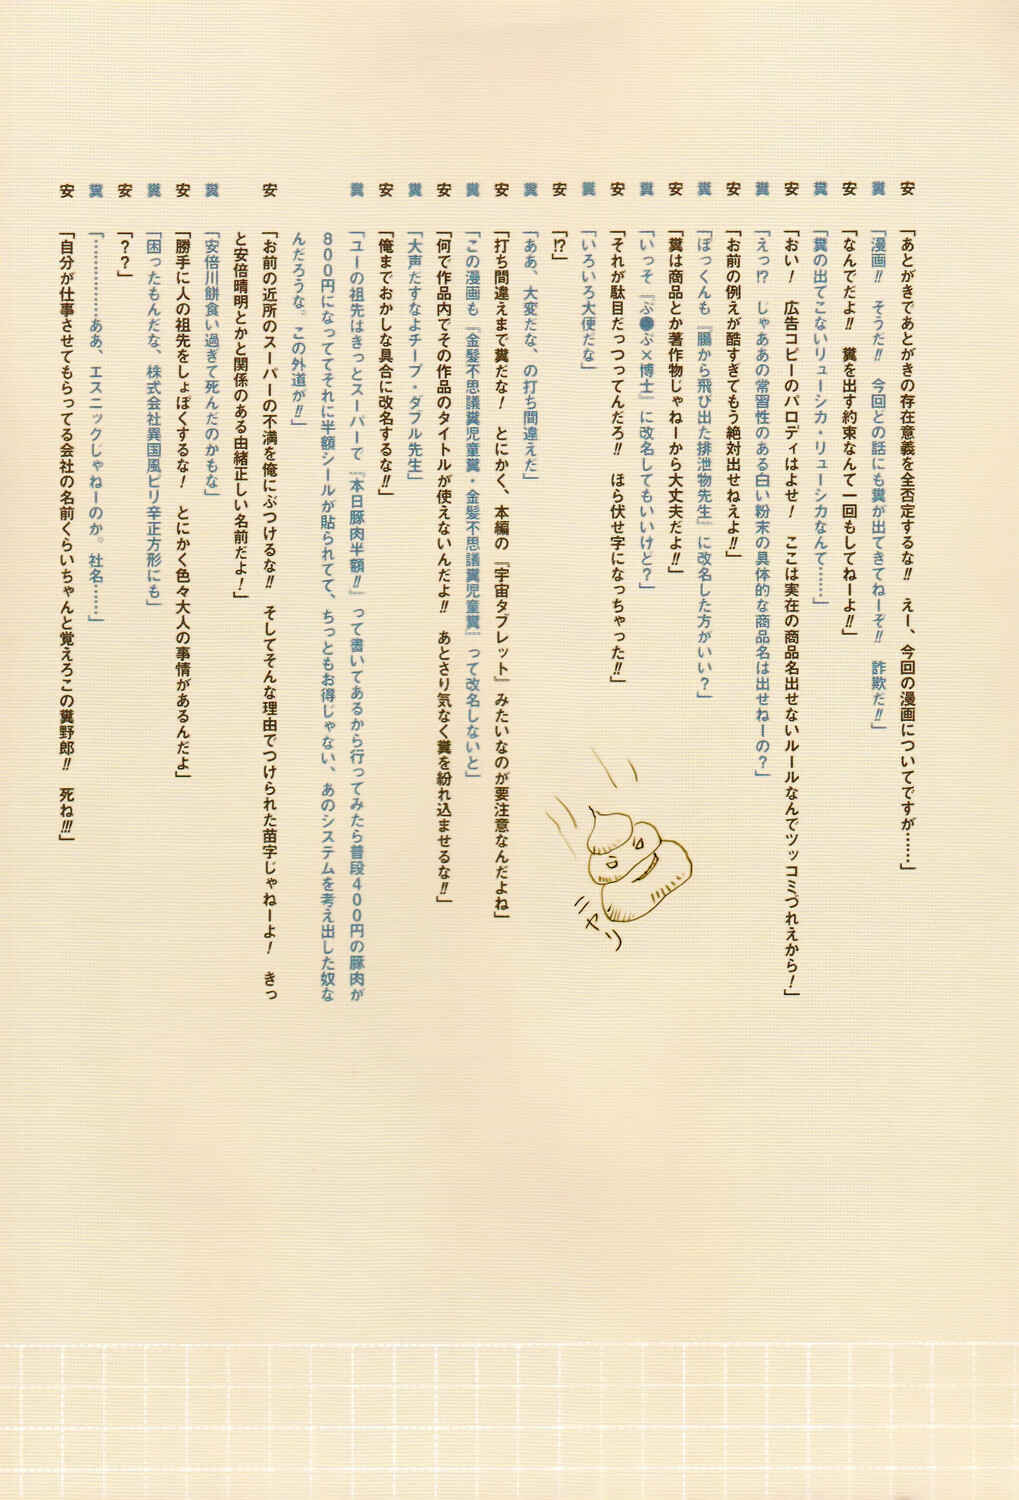 安　「あとがきであとがきの存在意義を全否定するな!!　えー、今回の漫画についてですが……」
糞　「漫画!!　そうだ!!　今回どの話にも糞が出てきてねーぞ!!　詐欺だ!!」
安　「なんでだよ!!　糞を出す約束なんて一回もしてねーよ!!」
糞　「糞の出てこないリューシカ・リューシカなんて……」
安　「おい！　広告コピーのパロディはよせ！　ここは実在の商品名出せないルールなんでツッコミづれえから！」
糞　「えっ!?　じゃああの常習性のある白い粉末の具体的な商品名は出せねーの？」
安　「お前の例えが酷すぎてもう絶対出せねえよ!!」
糞　「ぼっくんも『腸から飛び出た排泄物先生』に改名した方がいい？」
安　「糞は商品とか著作物じゃねーから大丈夫だよ!!」
糞　「いっそ『ぷ●ぷ×博士』に改名してもいいけど？」
安　「それが駄目だっつってんだろ!!　ほら伏せ字になっちゃった!!」
糞　「いろいろ大便だな」
安　「!?」
糞　「ああ、大変だな、の打ち間違えだ」
安　「打ち間違えまで糞だな！　とにかく、本編の『宇宙タブレット』みたいなのが要注意なんだよね」
糞　「この漫画も『金髪不思議糞児童糞・金髪不思議糞児童糞』って改名しないと」
安　「何で作品内でその作品のタイトルが使えないんだよ!!　あとさり気なく糞を紛れ込ませるな!!」
糞　「大声だすなよチープ・ダブル先生」
安　「俺までおかしな具合に改名するな!!」
糞　「ユーの祖先はきっとスーパーで『本日豚肉半額!!』って書いてあるから行ってみたら普段４００円の豚肉が
８００円になっててそれに半額シールが貼られてて、ちっともお得じゃない、あのシステムを考え出した奴な
んだろうな。この外道が!!」
安　「お前の近所のスーパーの不満を俺にぶつけるな!!　そしてそんな理由でつけられた苗字じゃねーよ！　きっ
と安倍晴明とかと関係のある由緒正しい名前だよ！」
糞　「安倍川餅食い過ぎて死んだのかもな」
安　「勝手に人の祖先をしょぼくするな！　とにかく色々大人の事情があるんだよ」
糞　「困ったもんだな、株式会社異国風ピリ辛正方形にも」
安　「？？」
糞　「……………ああ、エスニックじゃねーのか。社名……」
安　「自分が仕事させてもらってる会社の名前くらいちゃんと覚えろこの糞野郎!!　死ね!!!」
ニヤッ